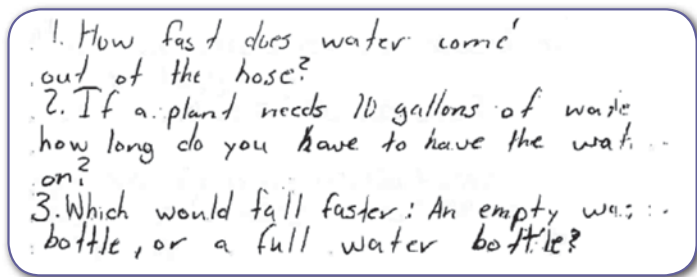 1. How fast does water come
out of the hose?
2. If a plant needs 10 gallons of
how long do you have to have the
on?
3. Which would fall faster: An empty
bottle, or a full water bottle?